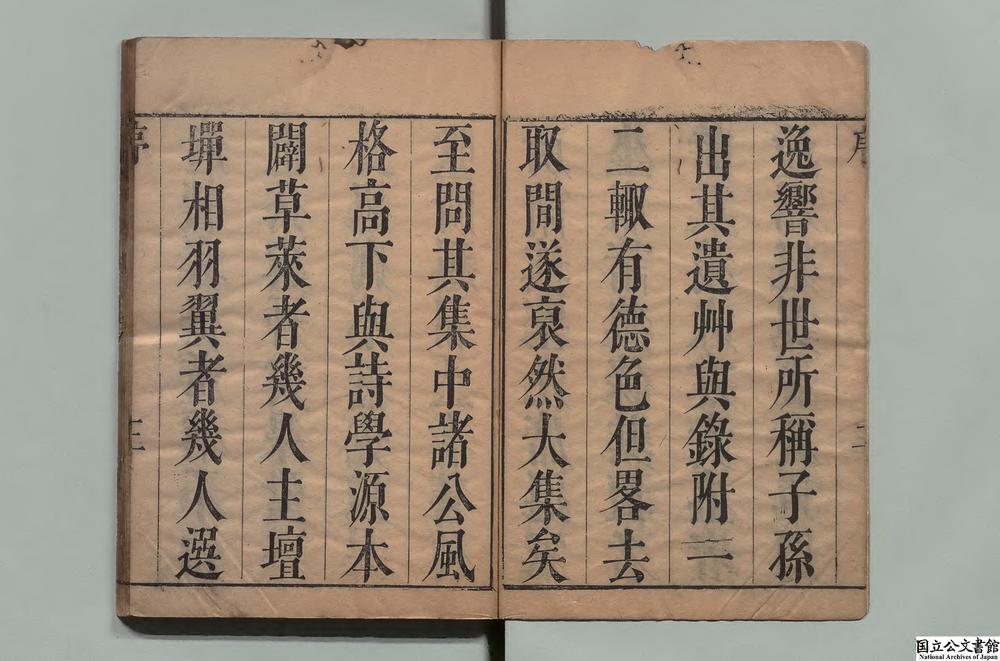 逸響非世所稱子孫
出其遺艸與錄附一
二輙有德色但畧去
取間遂裒然大集矣
至問其集中諸公風
格高下與詩學源本
闢草萊者幾人主壇
墠相羽翼者幾人選
国立公文書館
National Archives of Japan